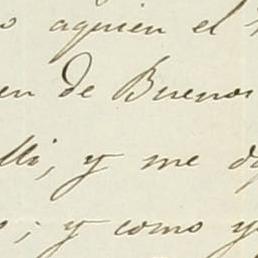 o aquien el
en de Buenos
lli, y me de
o; y como y